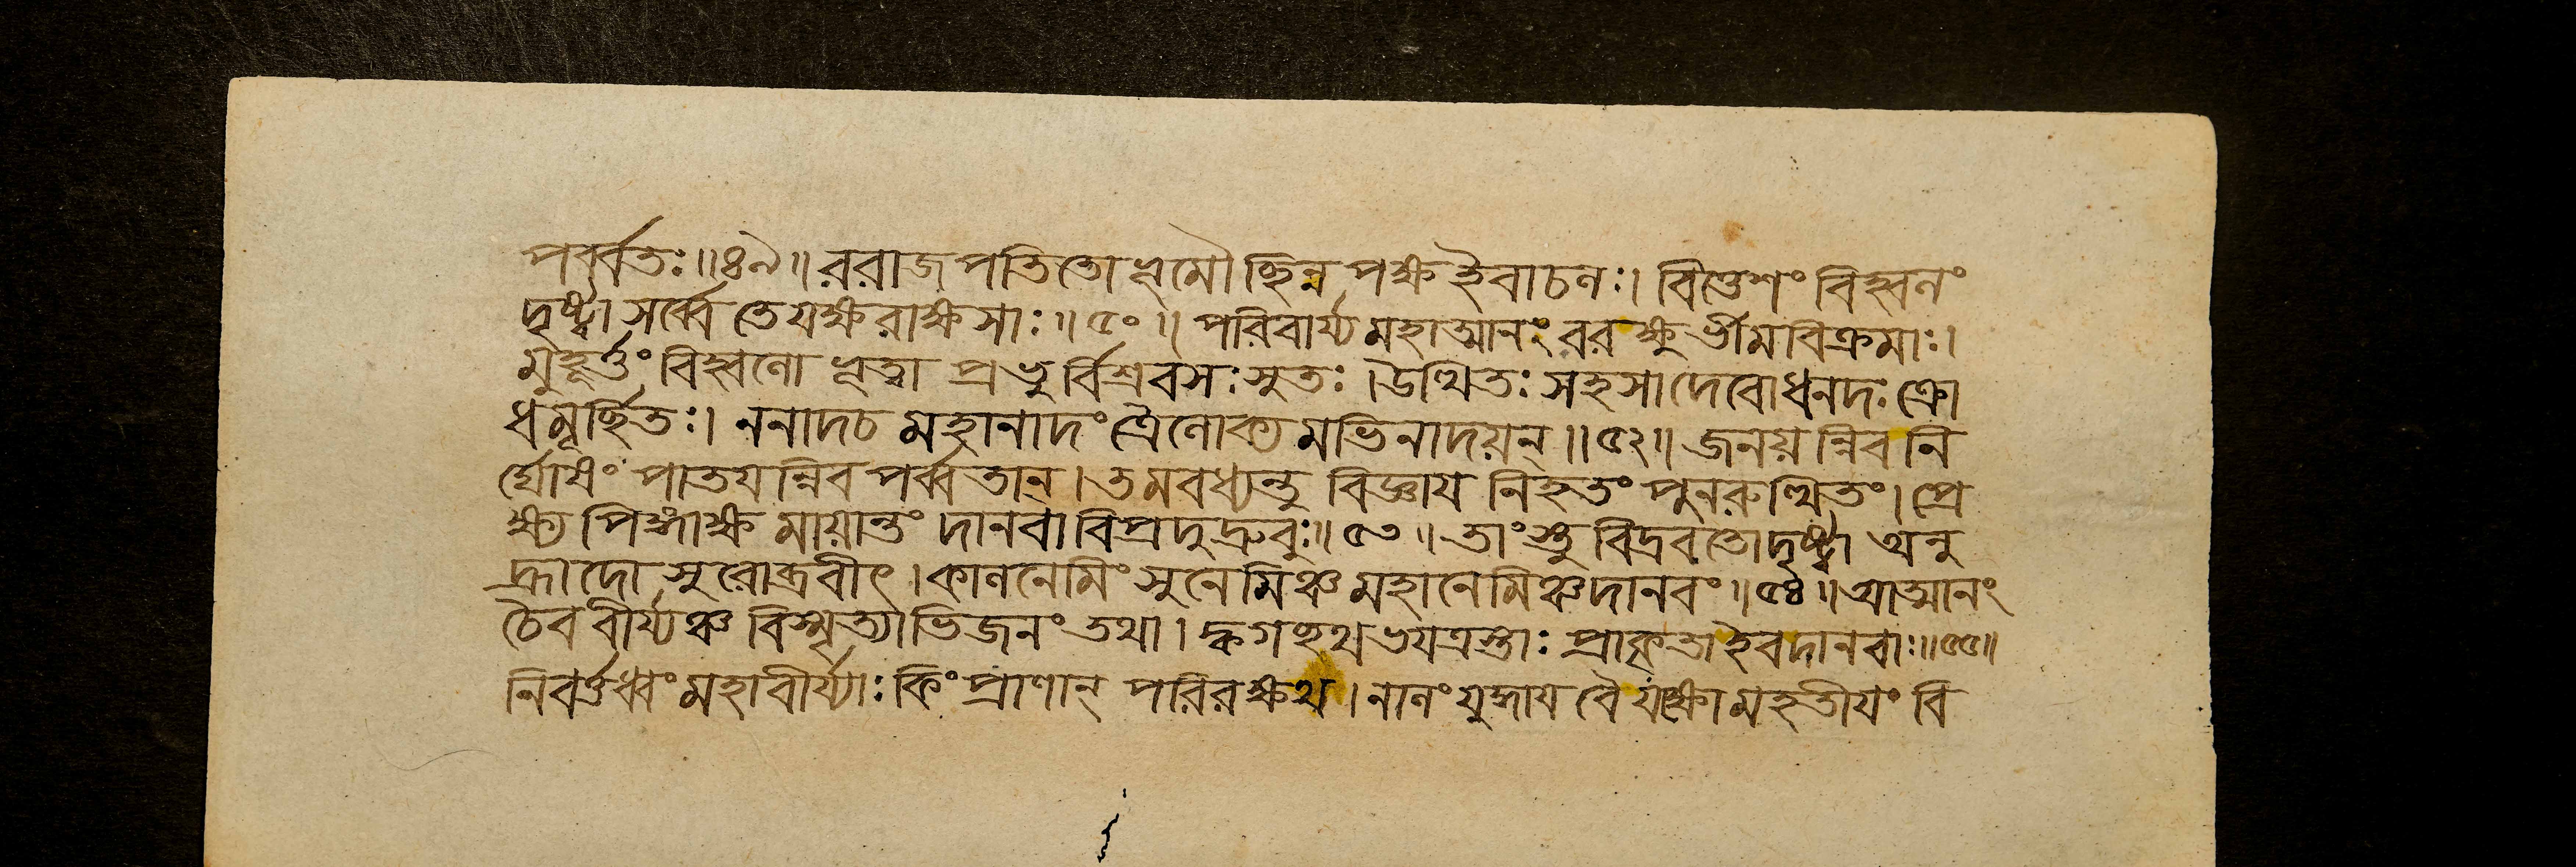 পর্ব্বতঃ॥৪৯॥ ররাজ পতিতো ভূমৌ ছিন্ন পক্ষ ইবাচলঃ। বিত্তেশং বিহ্বলং
দৃষ্ট্বা সর্ব্বে তে যক্ষরাক্ষসাঃ॥৫০॥ পরিবার্য্য মহাত্মানং ররক্ষুর্ভীমবিক্রমাঃ।
মুহূর্ত্তং বিহ্বলো ভূত্বা প্রভুর্বিশ্রবসঃ সুতঃ। উত্থিতঃ সহসা দেবো ধনদঃ ক্রো
ধমূর্চ্ছিতঃ। ননাদ চ মহানাদং ত্রৈলোক্য মভিনাদয়ন্॥৫২॥ জনয়ন্নিব নি
র্ঘোষং পাতয়ন্নিব পর্ব্বতান্। তমবধ্যন্তু বিজ্ঞায় নিহতং পুনরুত্থিতং। প্রে
ক্ষ্য পিঙ্গাক্ষ মায়ান্তং দানবা বিপ্রদুদ্রুবুঃ॥৫৩॥ তাংস্তু বিদ্রবতো দৃষ্ট্বা অনু
হ্লাদো সুরোব্রবীৎ। কালনেমিং সুনেমিঞ্চ মহানেমিঞ্চ দানবং॥৫৪॥ আত্মানং
চৈব বীর্য্যঞ্চ বিস্মৃত্যাভিজনং তথা। ক্ব গচ্ছথ ভয়ত্রস্তাঃ প্রাকৃতা ইব দানবাঃ॥৫৫॥
নিবর্ত্তধ্বং মহাবীর্য্যাঃ কিং প্রাণান্ পরিরক্ষথ। নালং যুদ্ধায় বৈ যক্ষো মহতীয়ং বি